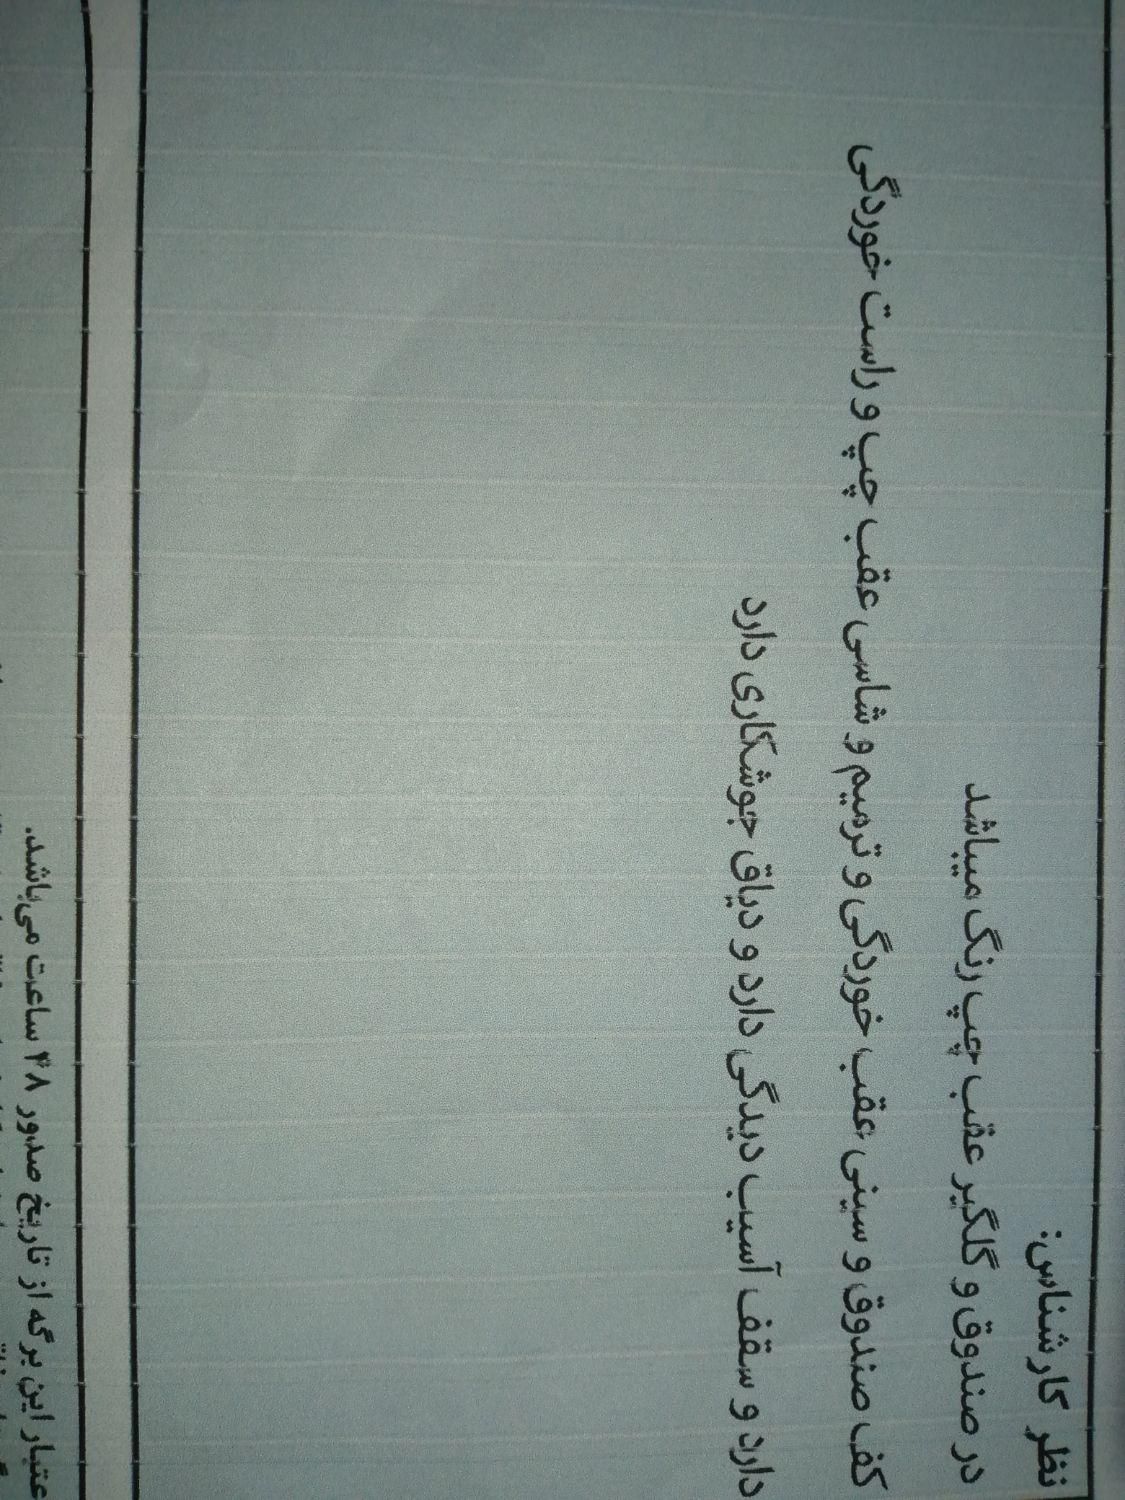 نظر کارشناس:
در صندوق و گلگیر عقب چپ رنگ میباشد
کف صندوق و سینی عقب خوردگی و ترمیم و شاسی عقب چپ و راست خوردگی
دارد و سقف آسیب دیدگی دارد و دیاق جوشکاری دارد
عتبار این برگه از تاریخ صدور ۴۸ ساعت می‌باشد.